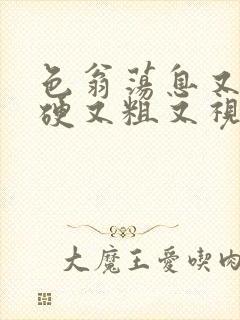 色翁荡息又
硬又粗又視
大魔王愛喫肉